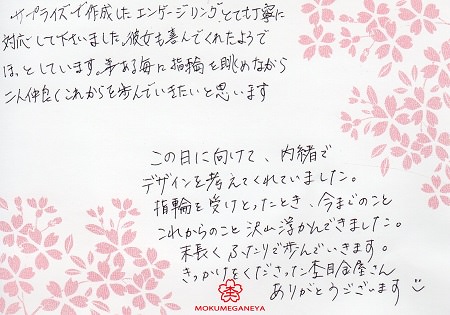 サプライズで作成したエンゲージリングとても丁寧に
対応して下さいました。彼女も喜んでくれたようで
ほっとしています。事ある毎に指輪を眺めながら
二人仲良くこれからを歩んでいきたいと思います
この日に向けて、内緒で
デザインを考えてくれていました。
指輪を受けとったとき、今までのこと
これからのこと沢山浮かんできました。
末長くふたりで歩んでいきます。
きっかけをくださった杢目金屋さん
ありがとうございます
MOKUMEGANEYA